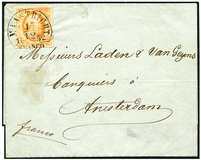 MAASTRICHT
Messieurs Laden & Van Geuns
Banquiers à
Amsterdam
franco